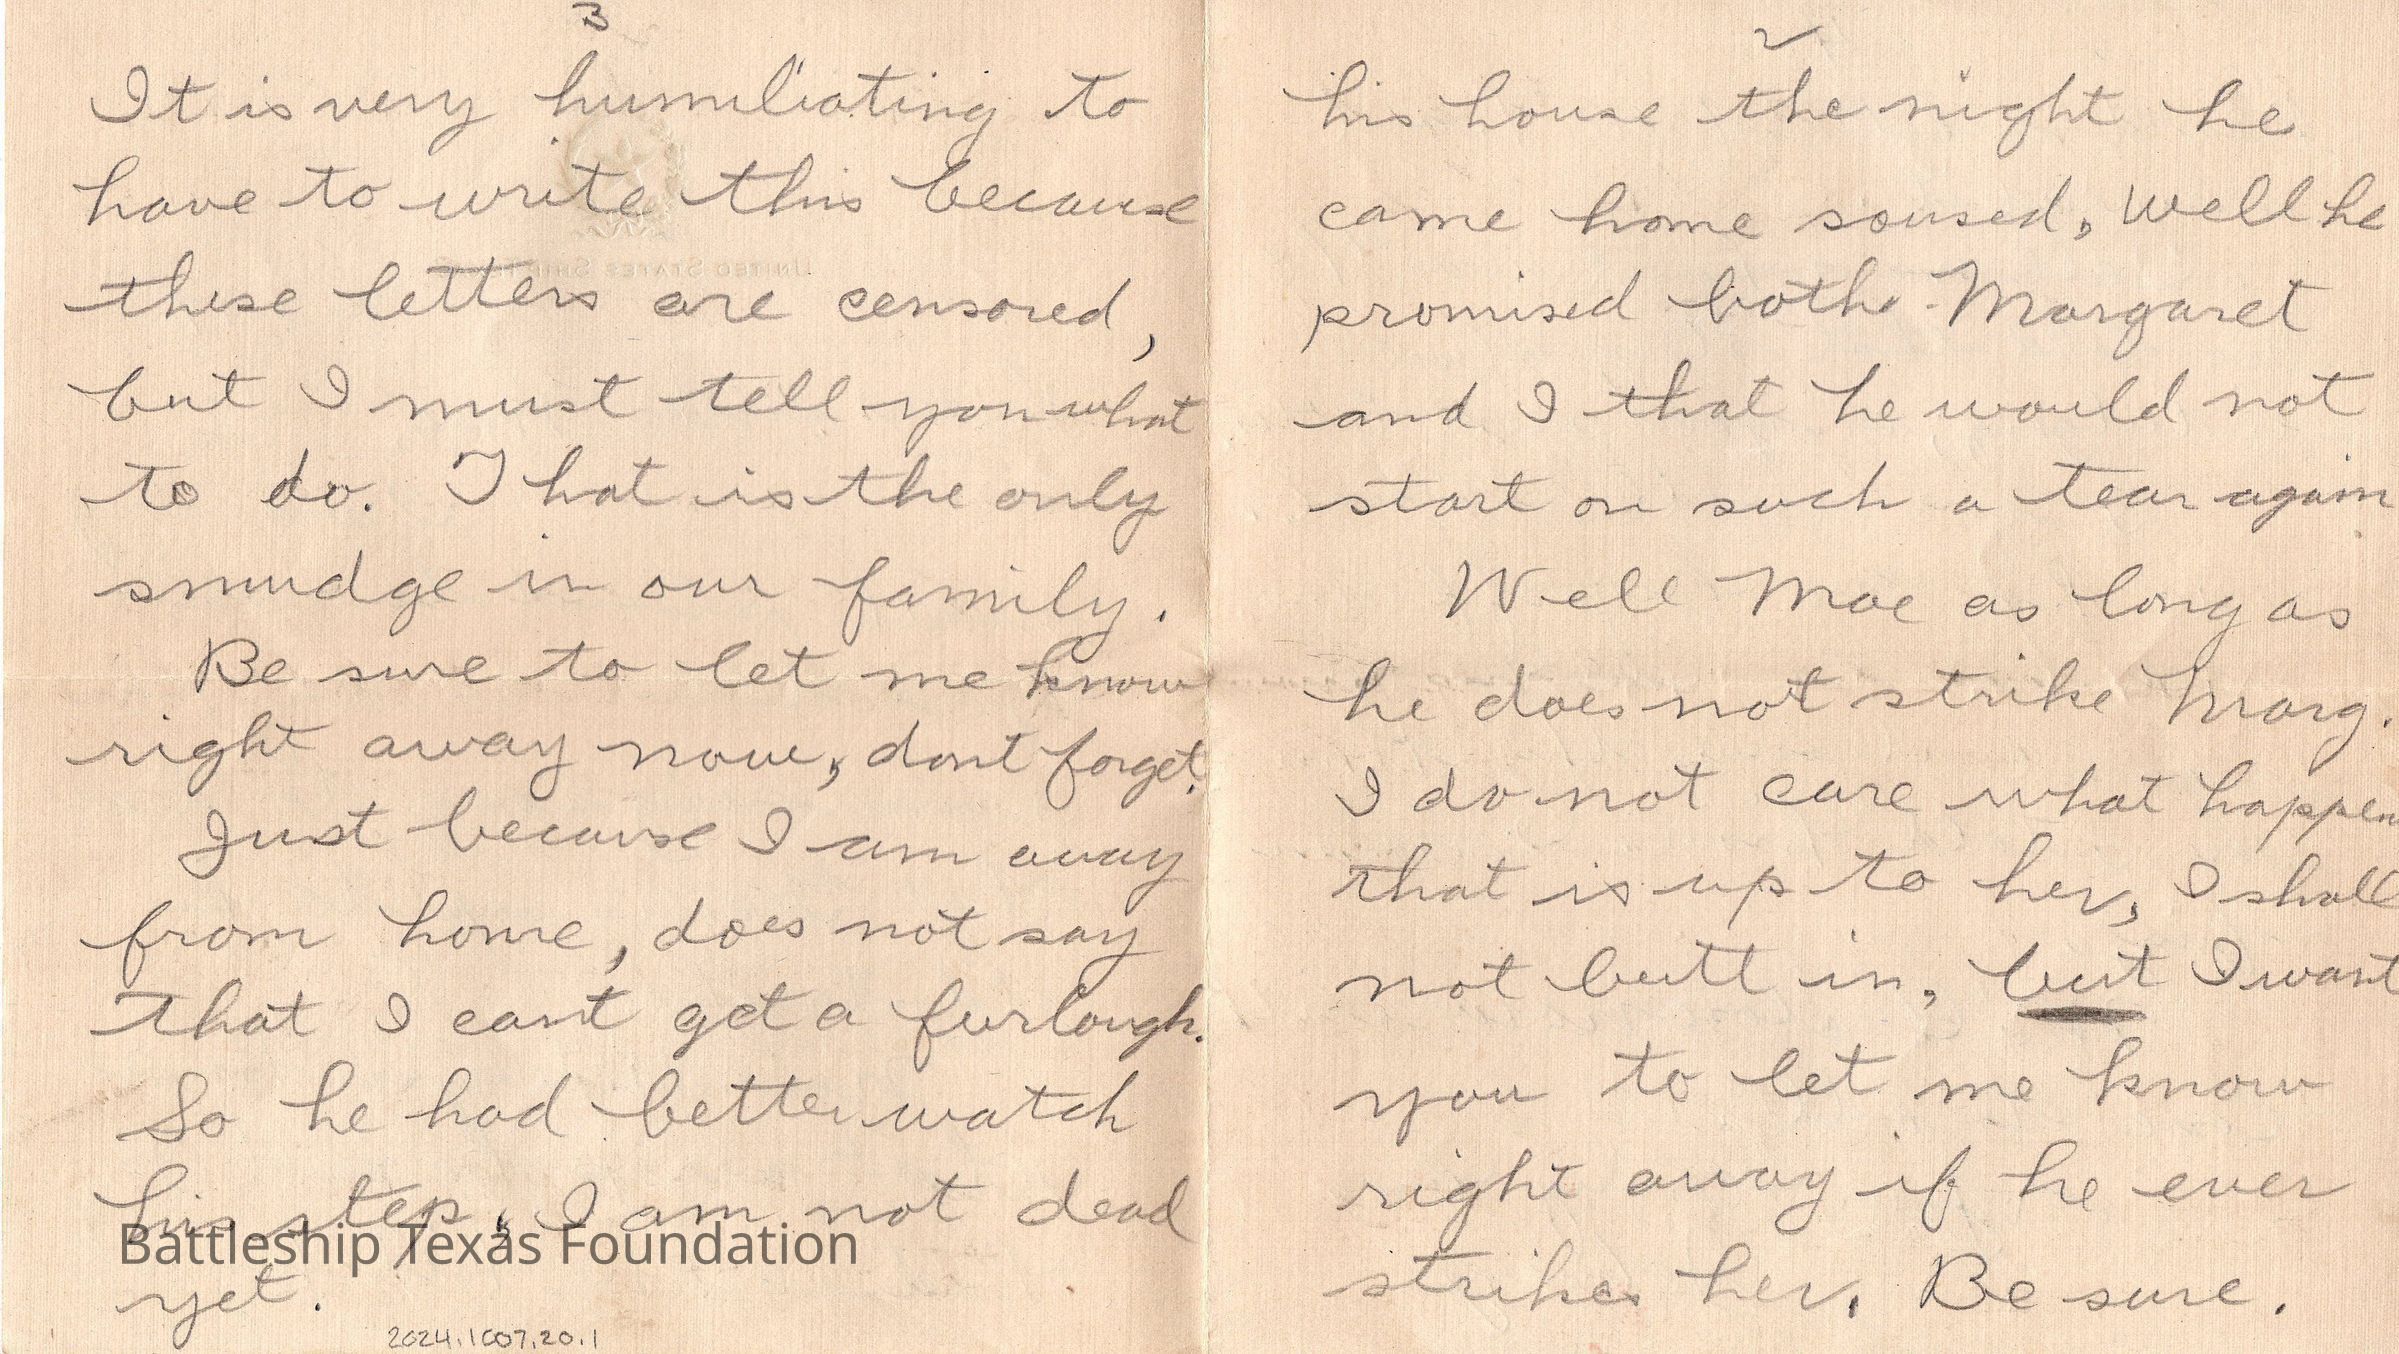 3
It is very humiliating to
have to write this because
these letters are censored,
but I must tell you what
to do. That is the only
smudge in our family.
Be sure to let me know
right away now, dont forget.
Just because I am away
from home, does not say
that I cant get a furlough.
So he had better watch
his step, I am not dead
yet.
UNITED STATES
Battleship Texas Foundation
2024.1007.20.1
2
his house the night he
came home soused, Well he
promised both Margaret
and I that he would not
start on such a tear again
Well Mae as long as
he does not strike Marg.
I do not care what happen
that is up to her, I shall
not butt in, but I want
you to let me know
right away if he ever
strikes her, Be sure.